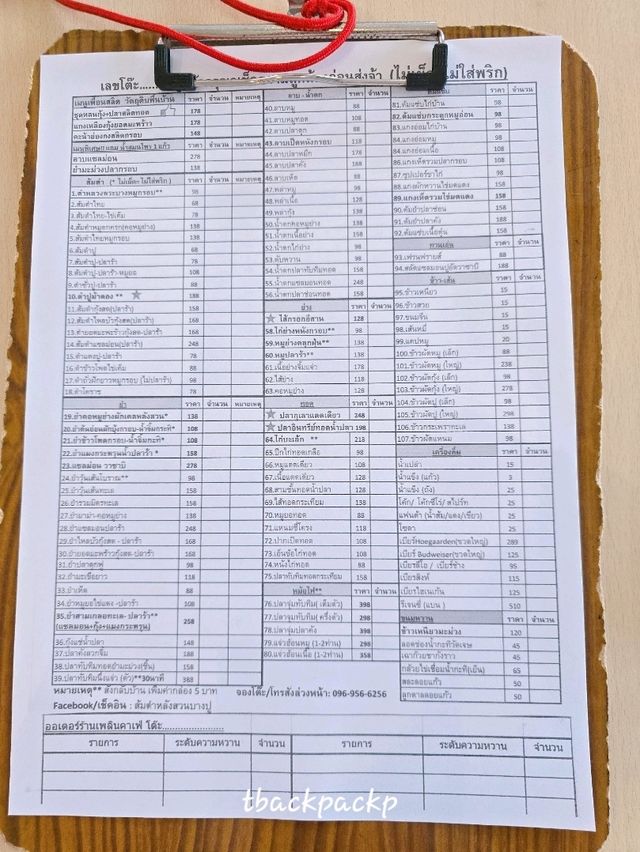 เลขโต๊ะ........
ก่อนส่งจ้า (ไม่เผ็ด=ไม่ใส่พริก)
เมนูเพื่อนสลิด วัตถุดิบพื้นบ้าน ราคา จำนวน หมายเหตุ
ชุดหลนกุ้ง+ปลาสลิดทอด 178
แกงเหลืองกุ้งยอดมะพร้าว 178
คะน้าฮ่องกงสลิดกรอบ 148
278
ยำมะม่วงปลากรอบ 138
ส้มตำ (* ไม่เผ็ด=ไม่ใส่พริก) ราคา จำนวน หมายเหตุ
1.ตำหลวงพระบางหมูกรอบ** 98
2.ส้มตำไทย 68
3.ส้มตำไทย-ไข่เค็ม 78
4.ส้มตำหมูกรอบ(คอหมูย่าง) 138
5.ส้มตำไทยหมูกรอบ 138
6.ส้มตำปู 68
7.ส้มตำปู-ปลาร้า 78
8.ส้มตำปู-ปลาร้า-หมูยอ 108
9.ตำซั่วปู-ปลาร้า 88
10.ตำปูม้าดอง ** 188
11.ส้มตำกุ้งสด(ปลาร้า) 158
12.ส้มตำไหลบัวกุ้งสด(ปลาร้า) 168
13.ตำยอดมะพร้าวกุ้งสด-ปลาร้า 168
14.ส้มตำแซลม่อน(ปลาร้า) 248
15.ตำแตงปู-ปลาร้า 78
16.ตำข้าวโพดไข่เค็ม 88
17.ตำถั่วฝักยาวหมูกรอบ (ไม่ปลาร้า) 98
18.ตำโคราช 78
ยำ ราคา จำนวน หมายเหตุ
19.ยำคอหมูย่างผักเคลหลังสวน* 138
20.ยำต้นอ่อนผักบุ้งกรอบ-น้ำจิ้มกะทิ* 108
21.ยำข้าวโพดกรอบ-น้ำจิ้มกะทิ* 108
22.ยำแมงกะพรุนน้ำปลาร้า * 158
23.แซลม่อน วาซาบิ 278
24.ยำวุ้นเส้นโบราณ** 98
25.ยำวุ้นเส้นทะเล 158
26.ยำรวมมิตรทะเล 158
27.ยำมาม่า-คอหมูย่าง 138
28.ยำแซลมอนปลาร้า 248
29.ยำไหลบัวกุ้งสด - ปลาร้า 168
30.ยำยอดมะพร้าวกุ้งสด-ปลาร้า 168
31.ยำปลาดุกฟู 98
32.ยำมะเขือยาว 118
33.ยำเห็ด 88
34.ยำหมูยอไข่แดง -ปลาร้า 108
35.ยำสามเกลอทะเล- ปลาร้า** 258
(แซลมอน+กุ้ง+แมงกะพรุน)
36.กุ้งแช่น้ำปลา 148
37.ปลาดังลวกจิ้ม 188
38.ปลาทับทิมทอดยำมะม่วง(ชิ้น) 158
39.ปลาทับทิมนึ่งแจ่ว (ตัว)**30นาที 368
หมายเหตุ** สั่งกลับบ้าน เพิ่มค่ากล่อง 5 บาท
Facebook/เช็คอิน : ส้มตำหลังสวนบางปู
ลาบ - น้ำตก ราคา จำนวน
40.ลาบหมู 88
41.ลาบหมูทอด 108
42.ลาบปลาดุก 88
43.ลาบเป็ดหนังกรอบ 118
44.ลาบปลาหมึก 178
45.ลาบปลาคัง 188
46.ลาบเห็ด 88
47.พล่าหมู 98
48.พล่าเนื้อ 128
49.พล่ากุ้ง 138
50.น้ำตกคอหมูย่าง 138
51.น้ำตกเนื้อย่าง 158
52.น้ำตกไก่ย่าง 98
53.ตับหวาน 98
54.น้ำตกปลาทับทิมทอด 158
55.น้ำตกแซลมอนทอด 248
56.น้ำตกปลาช่อนทอด 158
ย่าง ราคา จำนวน
ไส้กรอกอีสาน 128
58.ไก่ย่างหนังกรอบ** 98
59.หมูย่างคลุกฝุ่น** 138
60.หมูปลาร้า** 138
61.เนื้อย่างจิ้มแจ่ว 178
62.ไส้ย่าง 118
63.คอหมูย่าง 128
ทอด ราคา จำนวน
ปลากุเลาแดดเดียว 248
ปลาอินทรีย์ทอดน้ำปลา 198
64.ไก่บะเล็ก ** 218
65.ปีกไก่ทอดเกลือ 98
66.หมูแดดเดียว 108
67.เนื้อแดดเดียว 128
68.สามชั้นทอดน้ำปลา 128
69.ไส้ทอดกระเทียม 138
70.หมูยอทอด 88
71.แหนมซี่โครง 118
72.ปากเป็ดทอด 108
73.เอ็นข้อไก่ทอด 108
74.หนังไก่ทอด 88
75.ปลาทับทิมทอดกระเทียม 158
หม้อไฟ** ราคา จำนวน
76.ปลาจุ่มทับทิม( เต็มตัว) 398
77.ปลาจุ่มทับทิม( ครึ่งตัว) 298
78.ปลาจุ่มปลาคัง 398
79.แจ่วฮ้อนหมู (1-2ท่าน) 298
80.แจ่วฮ้อนเนื้อ (1-2ท่าน) 358
จองโต๊ะ/โทรสั่งล่วงหน้า: 096-956-6256
ต้มแซ่บ ราคา จำนวน
81.ต้มแซ่บไก่บ้าน 98
82.ต้มแซ่บกระดูกหมูอ่อน 98
83.แกงอ่อมไก่บ้าน 98
84.แกงอ่อมหมู 98
85.แกงอ่อมเนื้อ 108
86.แกงเห็ดรวมปลากรอบ 108
87.ซุปเปอร์ขาไก่ 98
88.แกงผักหวานไข่มดแดง 158
89.แกงเห็ดรวมไข่มดแดง 158
90.ต้มยำปลาช่อน 158
91.ต้มยำปลาคัง 188
92.ต้มแซ่บเนื้อตุ๋น 158
ทานเล่น ราคา จำนวน
93.เฟรนฟรายส์ 88
94.สลัดแซลมอนปูอัดวาซาบิ 188
ข้าว-เส้น ราคา จำนวน
95.ข้าวเหนียว 15
96.ข้าวสวย 15
97.ขนมจีน 15
98.เส้นหมี่ 15
99.แคปหมู 20
100.ข้าวผัดหมู (เล็ก) 88
101.ข้าวผัดหมู (ใหญ่) 238
102.ข้าวผัดกุ้ง (เล็ก) 98
103.ข้าวผัดกุ้ง (ใหญ่) 278
104.ข้าวผัดปู (เล็ก) 98
105.ข้าวผัดปู (ใหญ่) 298
106.ข้าวกระเพราทะเล 138
107.ข้าวผัดแหนม 98
เครื่องดื่ม ราคา จำนวน
น้ำเปล่า 15
น้ำแข็ง (แก้ว) 3
น้ำแข็ง (ถัง) 25
โค้ก/ โค้กซีโร่/ สไปร์ท 25
แฟนต้า (น้ำส้ม/แดง/เขียว) 25
โซดา 25
เบียร์Hoegaarden(ขวดใหญ่) 289
เบียร์ Budweiser(ขวดใหญ่) 125
เบียร์ลีโอ / เบียร์ช้าง 95
เบียร์สิงห์ 115
เบียร์ไฮเนเก้น 125
รีเจนซี่ (แบน ) 510
ขนมหวาน ราคา จำนวน
ข้าวเหนียวมะม่วง 120
ลอดช่องน้ำกะทิวัดเจษ 45
เฉาก๊วยชากังราว 45
กล้วยไข่เชื่อมน้ำกะทิ(เย็น) 65
สละลอยแก้ว 50
ลูกตาลลอยแก้ว 50
ออเดอร์ร้านเพลินคาเฟ่ โต๊ะ......................
รายการ ระดับความหวาน จำนวน รายการ ระดับความหวาน จำนวน
tbackpackp